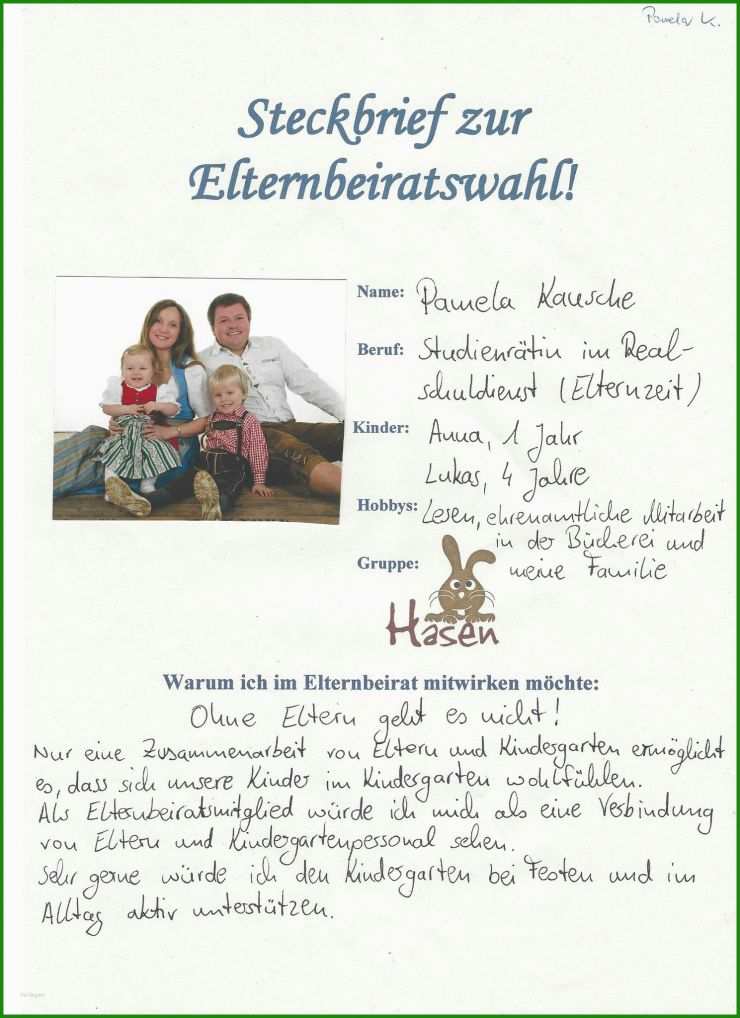 Pamela K.
Steckbrief zur
Elternbeiratswahl!
Name: Pamela Kausche
Beruf: Studienrätin im Real-
schuldienst (Elternzeit)
Kinder: Anna, 1 Jahr
Lukas, 4 Jahre
Hobbys: Lesen, ehrenamtliche Mitarbeit
in der Bücherei und
meine Familie
Gruppe:
Hasen
Warum ich im Elternbeirat mitwirken möchte:
Ohne Eltern geht es nicht!
Nur eine Zusammenarbeit von Eltern und Kindergarten ermöglicht
es, dass sich unsere Kinder im Kindergarten wohlfühlen.
Als Elternbeiratsmitglied würde ich mich als eine Verbindung
von Eltern und Kindergartenpersonal sehen.
Sehr gerne würde ich den Kindergarten bei Festen und im
Alltag aktiv unterstützen.